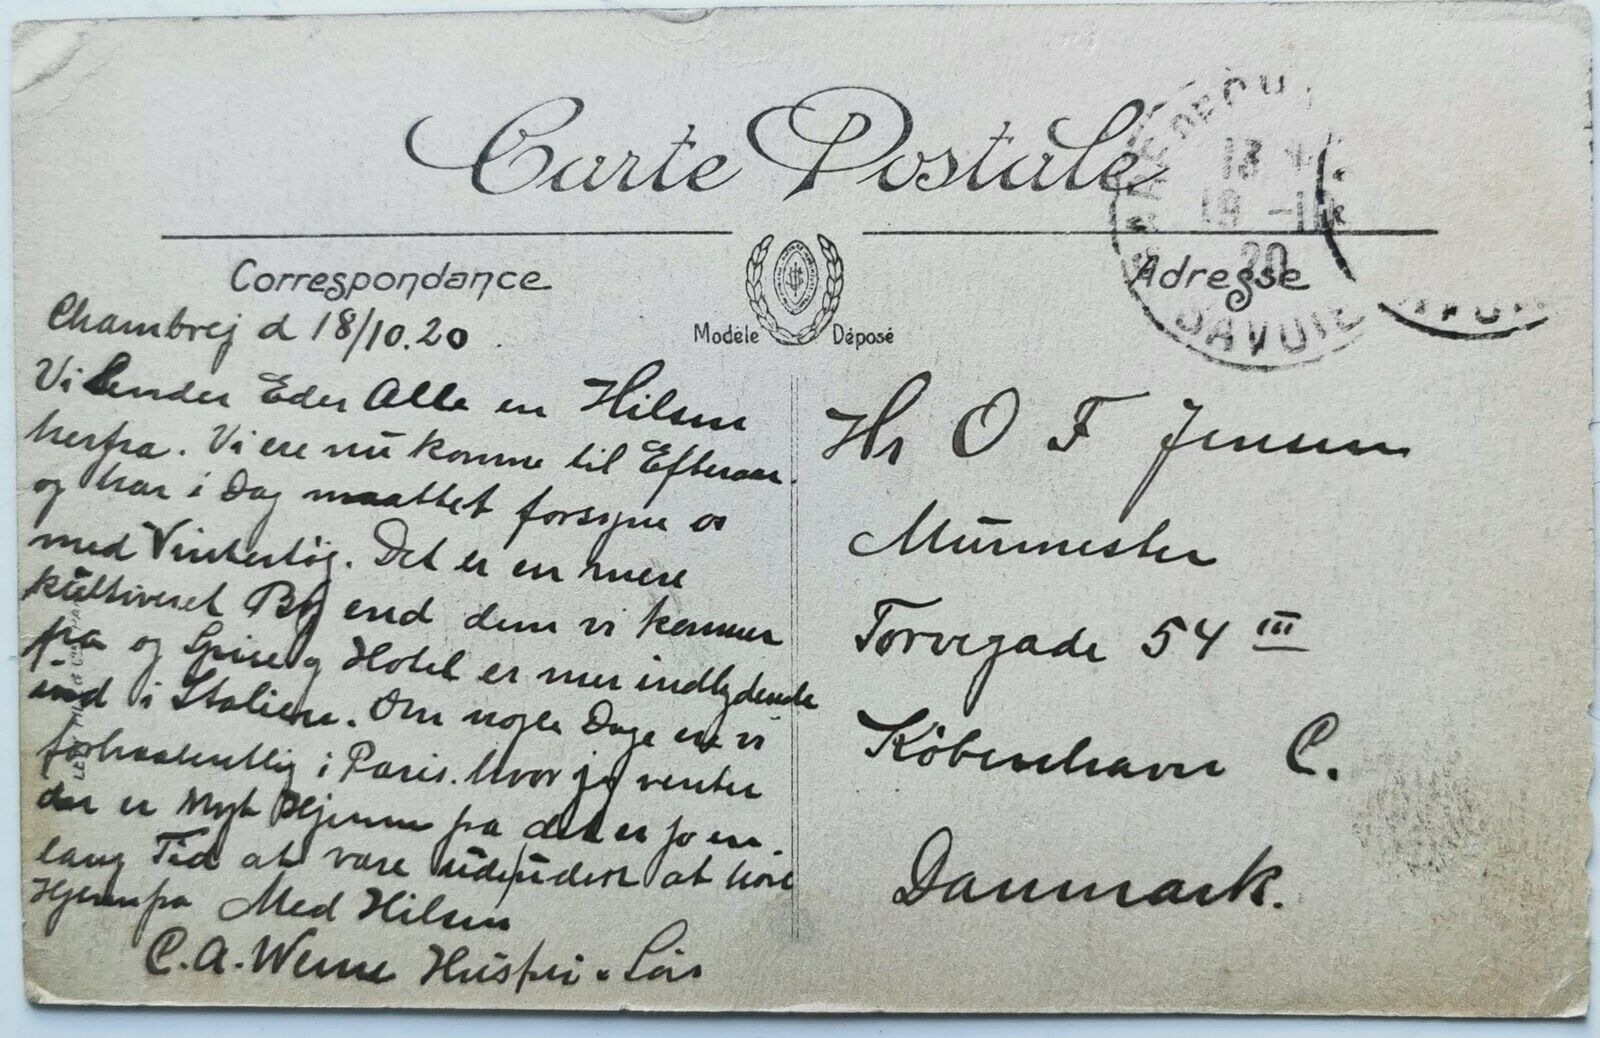 Carte Postale
Correspondance
Modèle Déposé
Adresse
13
19 -10
20
SAVOIE
Chambrej d 18/10.20
Vi sender Eder Alle en Hilsen
herfra. Vi ere nu komne til Efteraar
og har i Dag maattet forsyne os
med Vintertøj. Det er en mere
kultiveret By end dem vi kommer
fra og Spise og Hotel er mer indbydende
end i Italien. Om nogle Dage ere vi
forhaabentlig i Paris. hvor jeg venter
der er Nyt Hjemme fra det er jo en
lang Tid at være uden at høre
Hjemfra Med Hilsen
C. A. Werne Hustru
Hr O F Jensen
Murmester
Torvegade 54 III
København C.
Danmark.